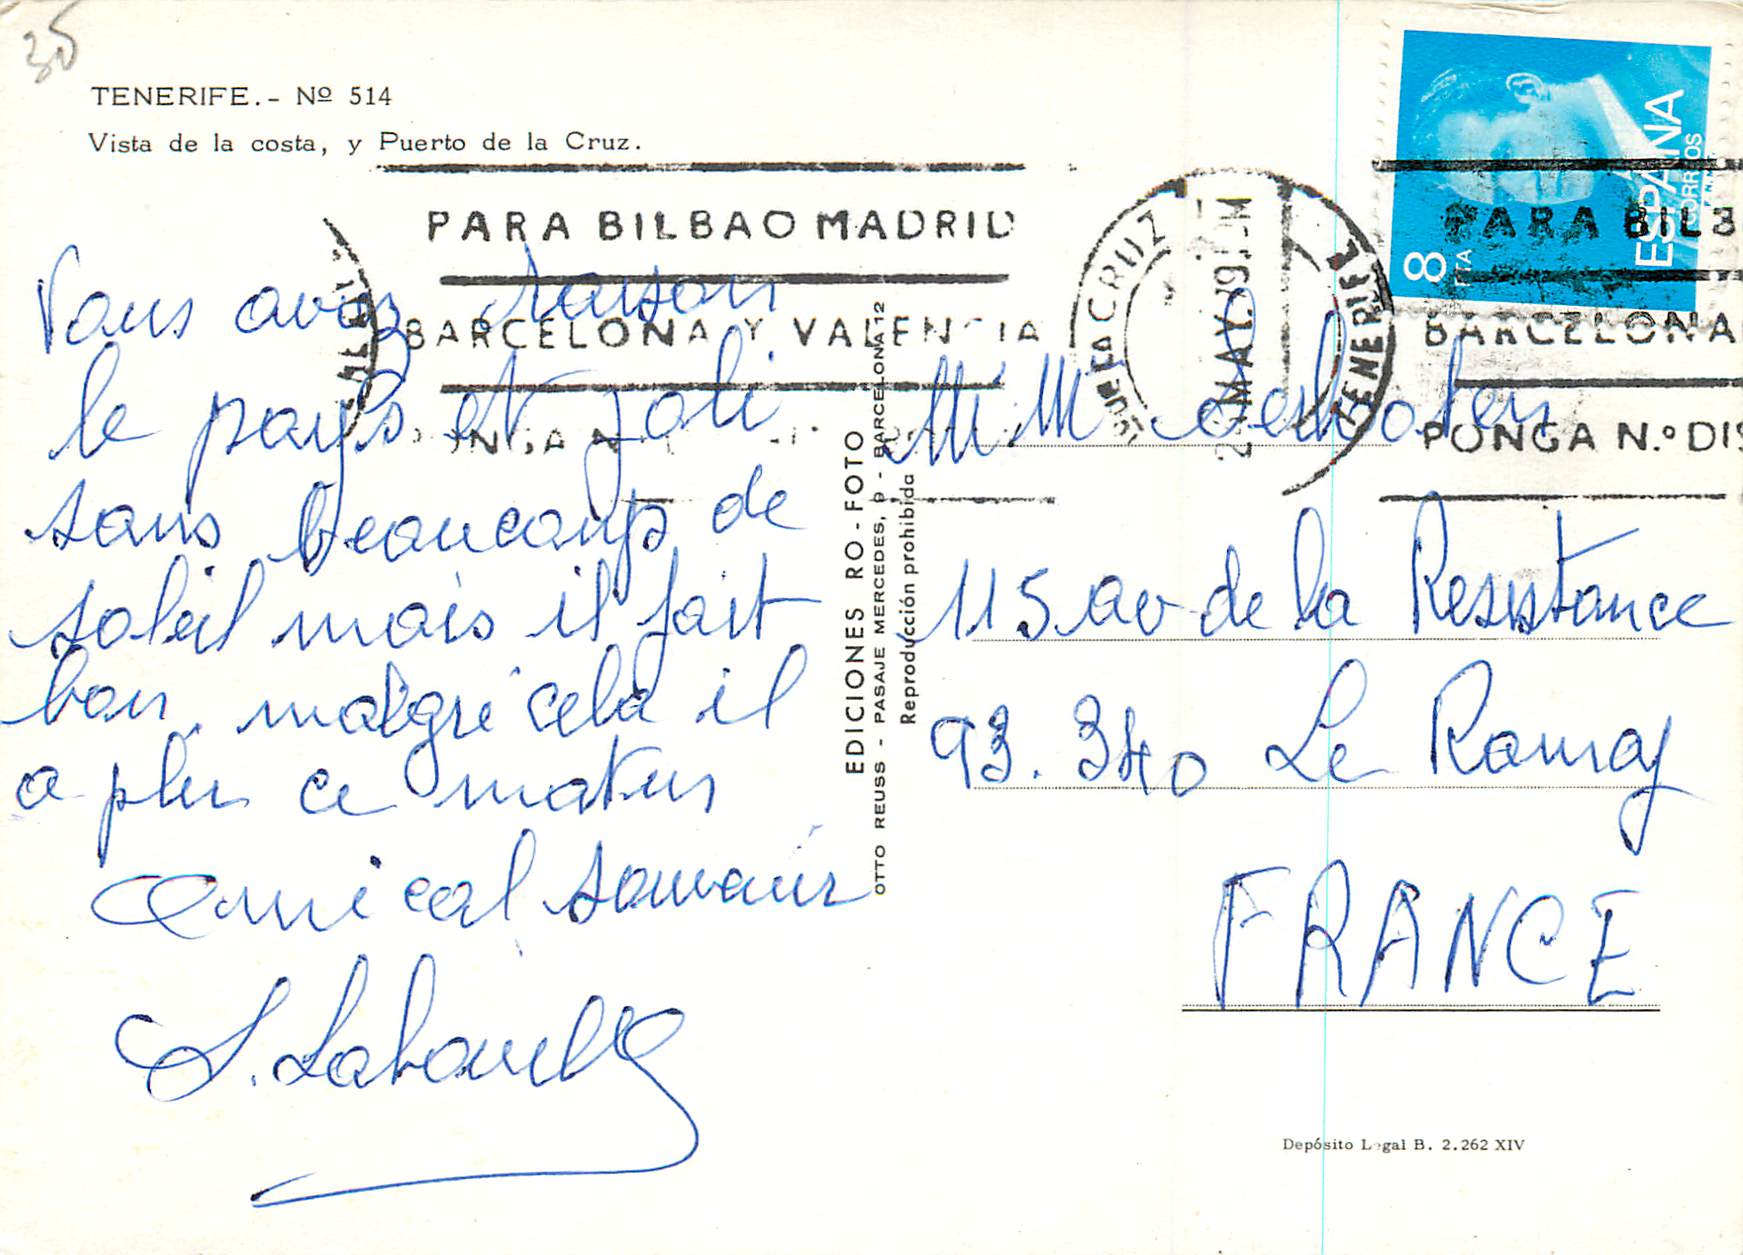 35
TENERIFE.- Nº 514
Vista de la costa, y Puerto de la Cruz.
PARA BILBAO MADRID
BARCELONA Y VALENCIA
PONGA N.
CRUZ
MAY. 79
TENERIFE
ESPAÑA
CORREOS
8 PTA
PARA BILB
BARCELONA
PONGA N.º DIS
Vous avez raison
le pays est joli
sans beaucoup de
soleil mais il fait
bon, malgré cela il
a plu ce matin
Amical souvenir
EDICIONES RO-FOTO
OTTO REUSS - PASAJE MERCEDES, 9 - BARCELONA 12
Reproducción prohibida
115 av de la Resistance
93.340 Le Raincy
FRANCE
Depósito Legal B. 2.262 XIV